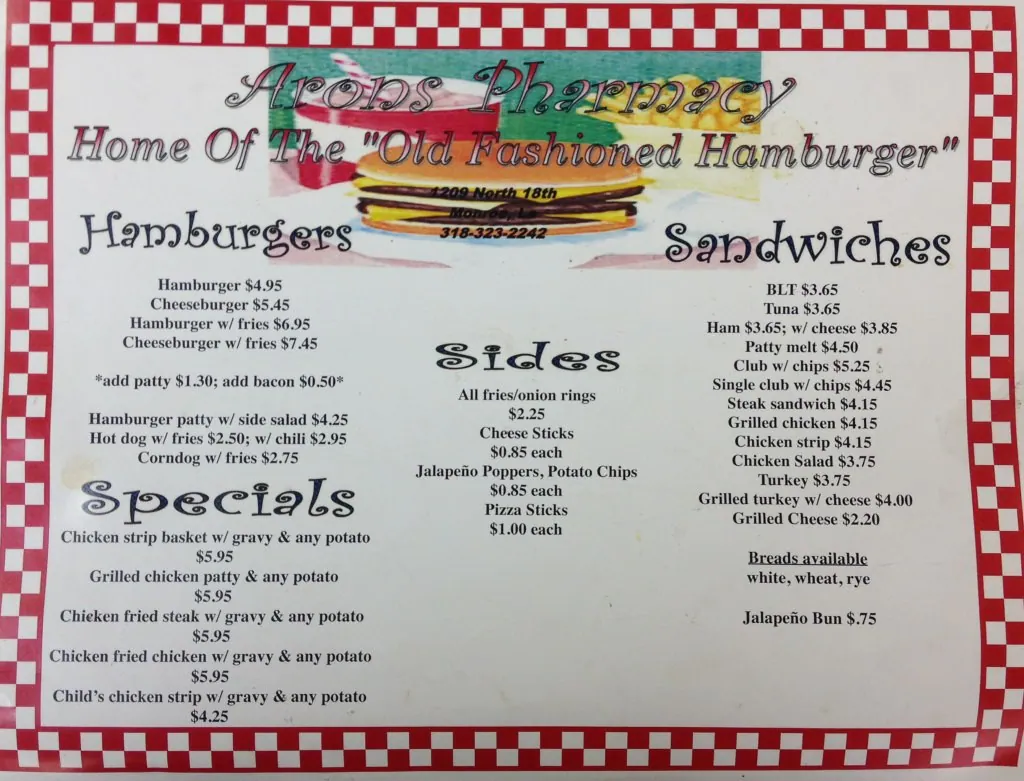 Arons Pharmacy
Home Of The "Old Fashioned Hamburger"
1209 North 18th
Monroe, La
318-323-2242
Hamburgers
Hamburger $4.95
Cheeseburger $5.45
Hamburger w/ fries $6.95
Cheeseburger w/ fries $7.45
*add patty $1.30; add bacon $0.50*
Hamburger patty w/ side salad $4.25
Hot dog w/ fries $2.50; w/ chili $2.95
Corndog w/ fries $2.75
Specials
Chicken strip basket w/ gravy & any potato
$5.95
Grilled chicken patty & any potato
$5.95
Chicken fried steak w/ gravy & any potato
$5.95
Chicken fried chicken w/ gravy & any potato
$5.95
Child's chicken strip w/ gravy & any potato
$4.25
Sides
All fries/onion rings
$2.25
Cheese Sticks
$0.85 each
Jalapeño Poppers, Potato Chips
$0.85 each
Pizza Sticks
$1.00 each
Sandwiches
BLT $3.65
Tuna $3.65
Ham $3.65; w/ cheese $3.85
Patty melt $4.50
Club w/ chips $5.25
Single club w/ chips $4.45
Steak sandwich $4.15
Grilled chicken $4.15
Chicken strip $4.15
Chicken Salad $3.75
Turkey $3.75
Grilled turkey w/ cheese $4.00
Grilled Cheese $2.20
Breads available
white, wheat, rye
Jalapeño Bun $.75